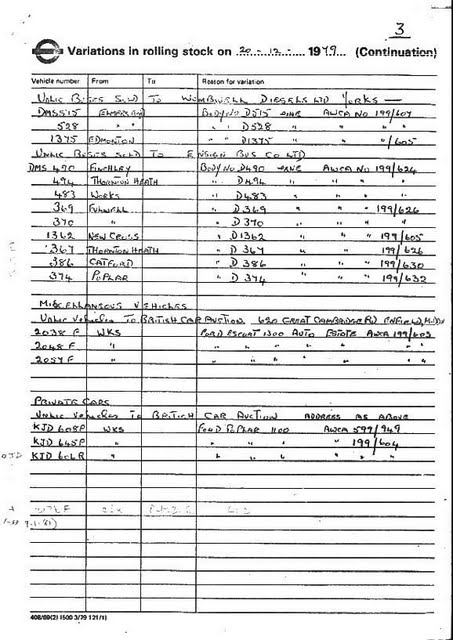 3
Variations in rolling stock on 20 - 12 - 1979 (Continuation)
Vehicle number From To Reason for variation
Unlic Buses Sold To Wombwell Diesels Ltd Yorks —
DMS515 Body No D515 AWCA No 199/607
528 " " " " D528 " " "
1375 EDMONTON " D1375 " " /605
Unlic Buses Sold To Ensign Bus Co Ltd
DMS 490 FINCHLEY Body No D490 AWCA 199/624
494 THORNTON HEATH " D494 " " "
483 WORKS " D483 " " "
369 FULWELL " D369 " " 199/626
370 " " D370 " " "
1362 NEW CROSS " D1362 " " 199/605
367 THORNTON HEATH " D367 " " 199/626
386 CATFORD " D386 " " 199/630
374 POPLAR " D374 " " 199/632
MISCELLANEOUS VEHICLES
Unlic Vehicles To BRITISH CAR AUCTION, 620 GREAT CAMBRIDGE RD ENFIELD, MIDDX
2038 F WKS FORD ESCORT 1300 AUTO ESTATE AWCA 199/603
2048 F " " " " " " "
2057 F " " " " " " "
PRIVATE CARS
Unlic Vehicles To BRITISH CAR AUCTION ADDRESS AS ABOVE
KJD 608P WKS FORD POPLAR 1100 AWCA 599/949
KJD 645P " " " " " 199/604
KJD 604R " " " " " "
7-1-81)
408/89(2) 1500 3/79 121/1)